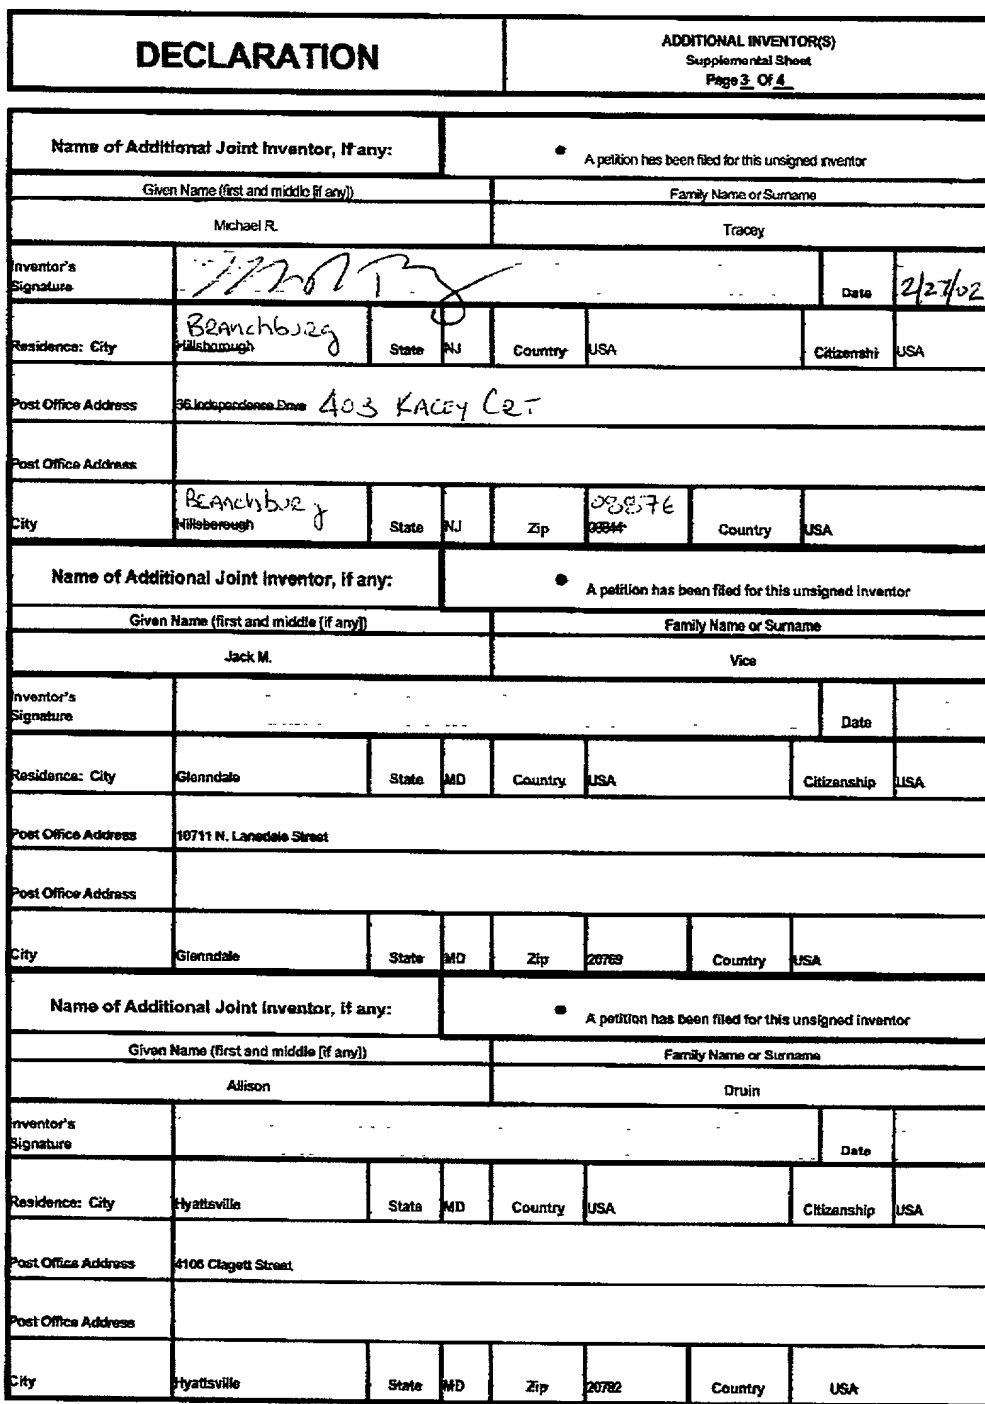 DECLARATION
ADDITIONAL INVENTOR(S)
Supplemental Sheet
Page 3 Of 4
Name of Additional Joint Inventor, if any:
• A petition has been filed for this unsigned inventor
Given Name (first and middle [if any]) Family Name or Surname
Michael R. Tracey
Inventor's
Signature Date 2/27/02
Branchburg
Residence: City Hillsborough State NJ Country USA Citizenshi USA
Post Office Address 36 Independence Drive 403 KACEY CRT
Post Office Address
Branchburg 08876
City Hillsborough State NJ Zip 08844 Country USA
Name of Additional Joint Inventor, if any:
• A petition has been filed for this unsigned inventor
Given Name (first and middle [if any]) Family Name or Surname
Jack M. Vice
Inventor's
Signature Date
Residence: City Glenndale State MD Country USA Citizenship USA
Post Office Address 10711 N. Lansdale Street
Post Office Address
City Glenndale State MD Zip 20769 Country USA
Name of Additional Joint Inventor, if any:
• A petition has been filed for this unsigned inventor
Given Name (first and middle [if any]) Family Name or Surname
Allison Druin
Inventor's
Signature Date
Residence: City Hyattsville State MD Country USA Citizenship USA
Post Office Address 4106 Clagett Street
Post Office Address
City Hyattsville State MD Zip 20782 Country USA